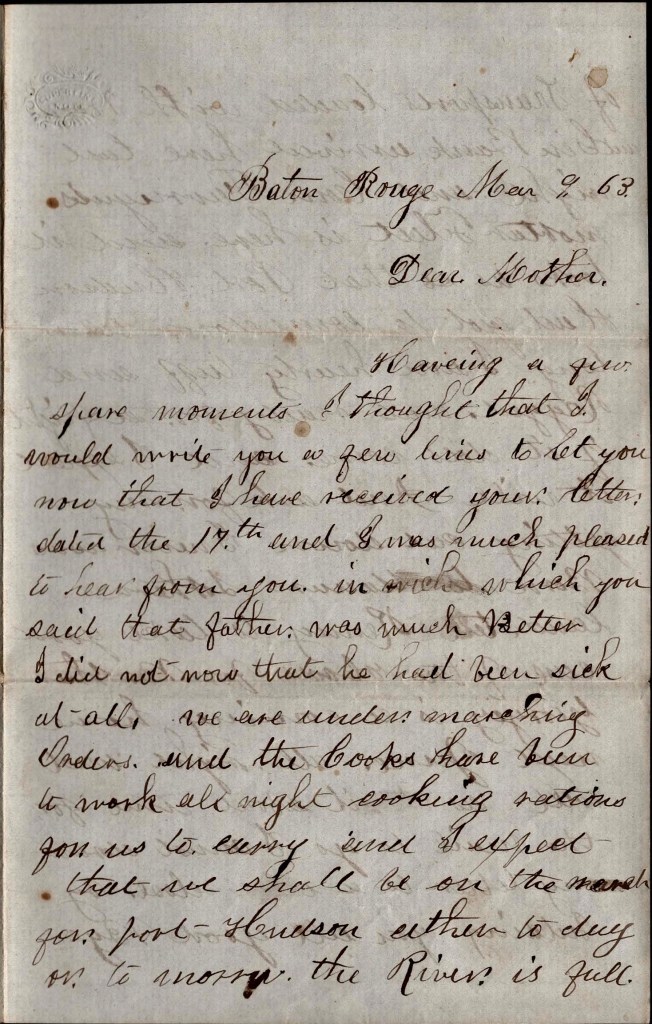 Baton Rouge Mar 9, 63.
Dear Mother.
Haveing a few
spare moments I thought that I
would write you a few lines to let you
now that I have received your letter
dated the 17.th and I was much pleased
to hear from you. in wich which you
said that father was much Better
I did not now that he had been sick
at all, we are under marching
Orders. and the Cooks have ben
to work all night cooking rations
for us to carry and I expect
that we shall be on the march
for port Hudson either to day
or to morrow. the River is full.